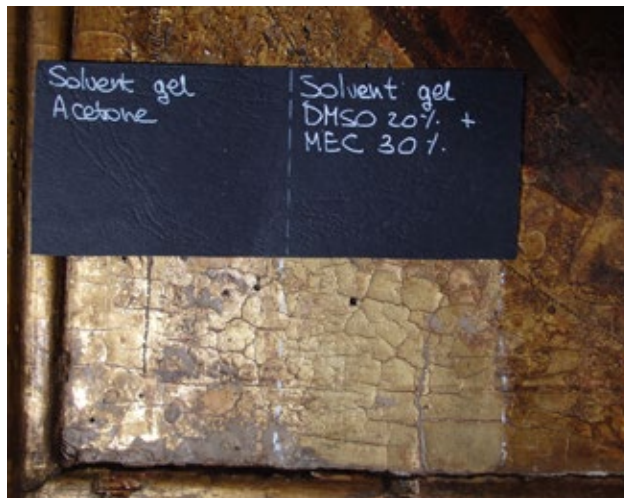 Solvent gel
Acetone
Solvent gel
DMSO 20% +
MEC 30%